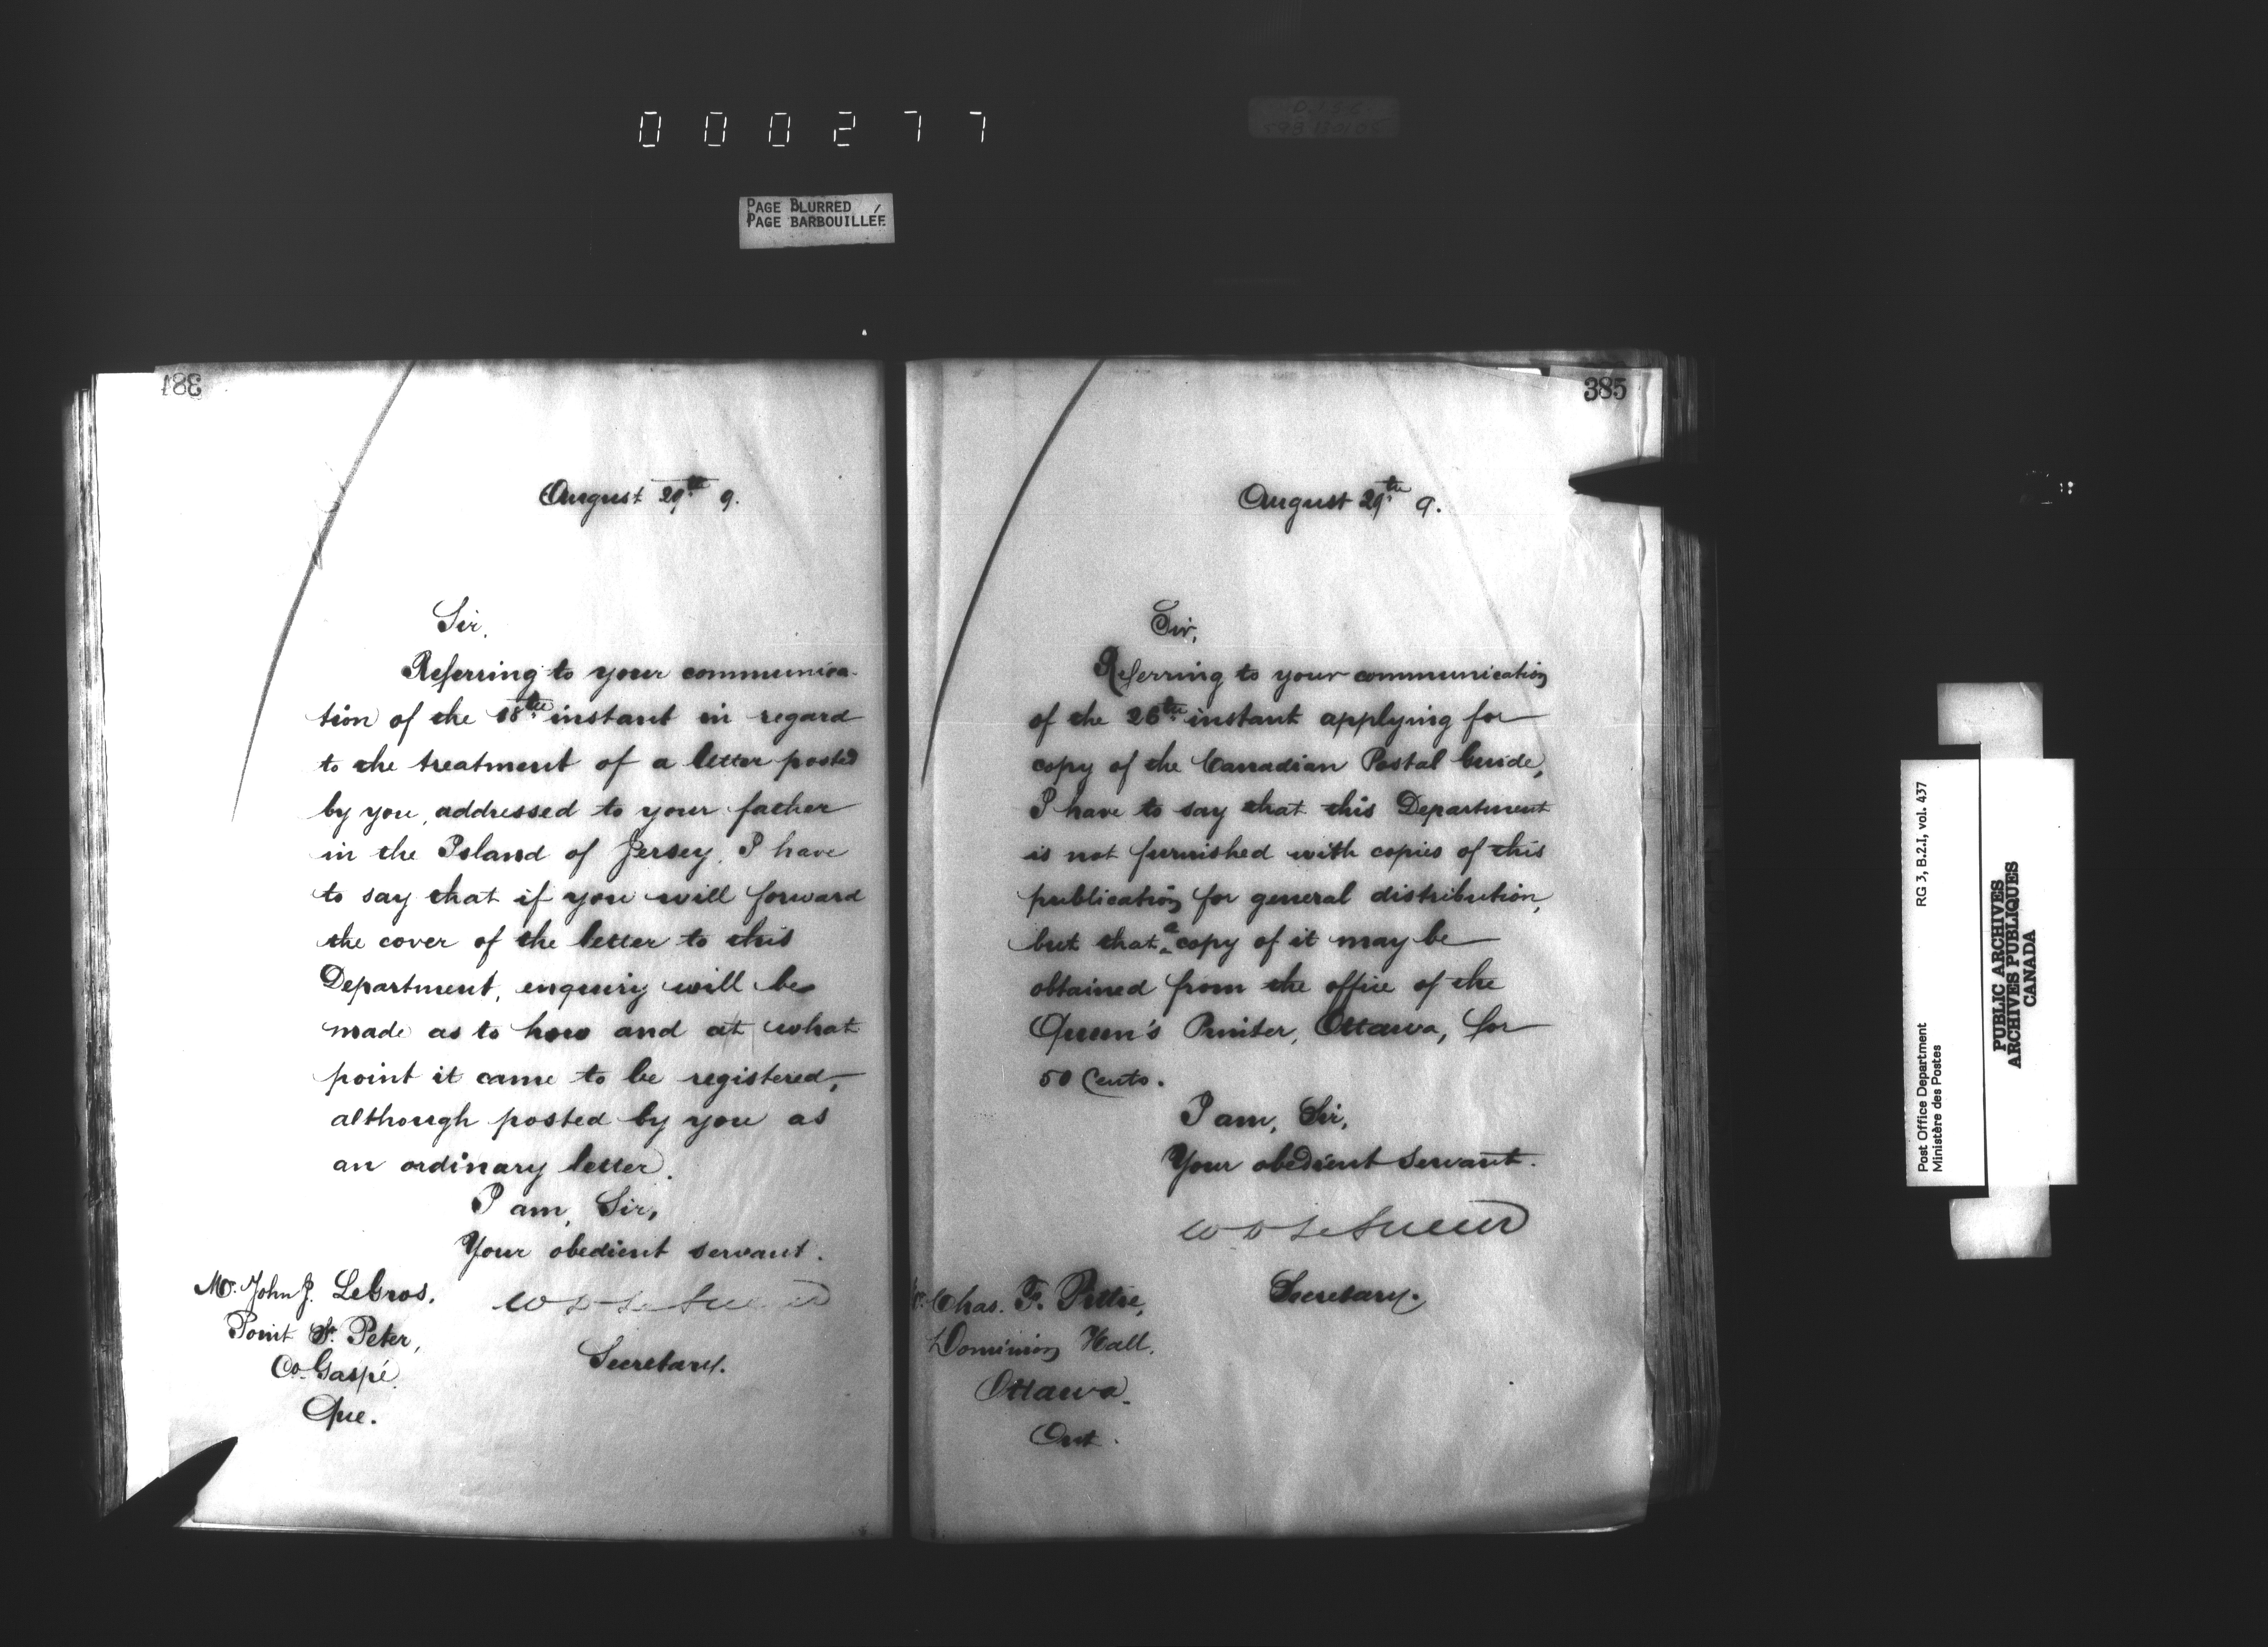 000277
PAGE BLURRED
PAGE BARBOUILLÉE
384
August 29th 9.
Sir,
Referring to your communica-
tion of the 18th instant in regard
to the treatment of a letter posted
by you, addressed to your father
in the Island of Jersey, I have
to say that if you will forward
the cover of the letter to this
Department, enquiry will be
made as to how and at what
point it came to be registered,
although posted by you as
an ordinary letter.
I am, Sir,
Your obedient servant.
W D LeSueur
Secretary.
Mr. John J. LeGros,
Point St. Peter,
Co. Gaspé
Que.
385
August 29th 9.
Sir,
Referring to your communication
of the 26th instant applying for
copy of the Canadian Postal Guide,
I have to say that this Department
is not furnished with copies of this
publication for general distribution,
but that a copy of it may be
obtained from the office of the
Queen's Printer, Ottawa, for
50 Cents.
I am, Sir,
Your obedient servant.
W D LeSueur
Secretary.
Chas. F.
Dominion Hall,
Ottawa.
Ont.
Post Office Department
Ministère des Postes
RG 3, B.2.I, vol. 437
PUBLIC ARCHIVES
ARCHIVES PUBLIQUES
CANADA